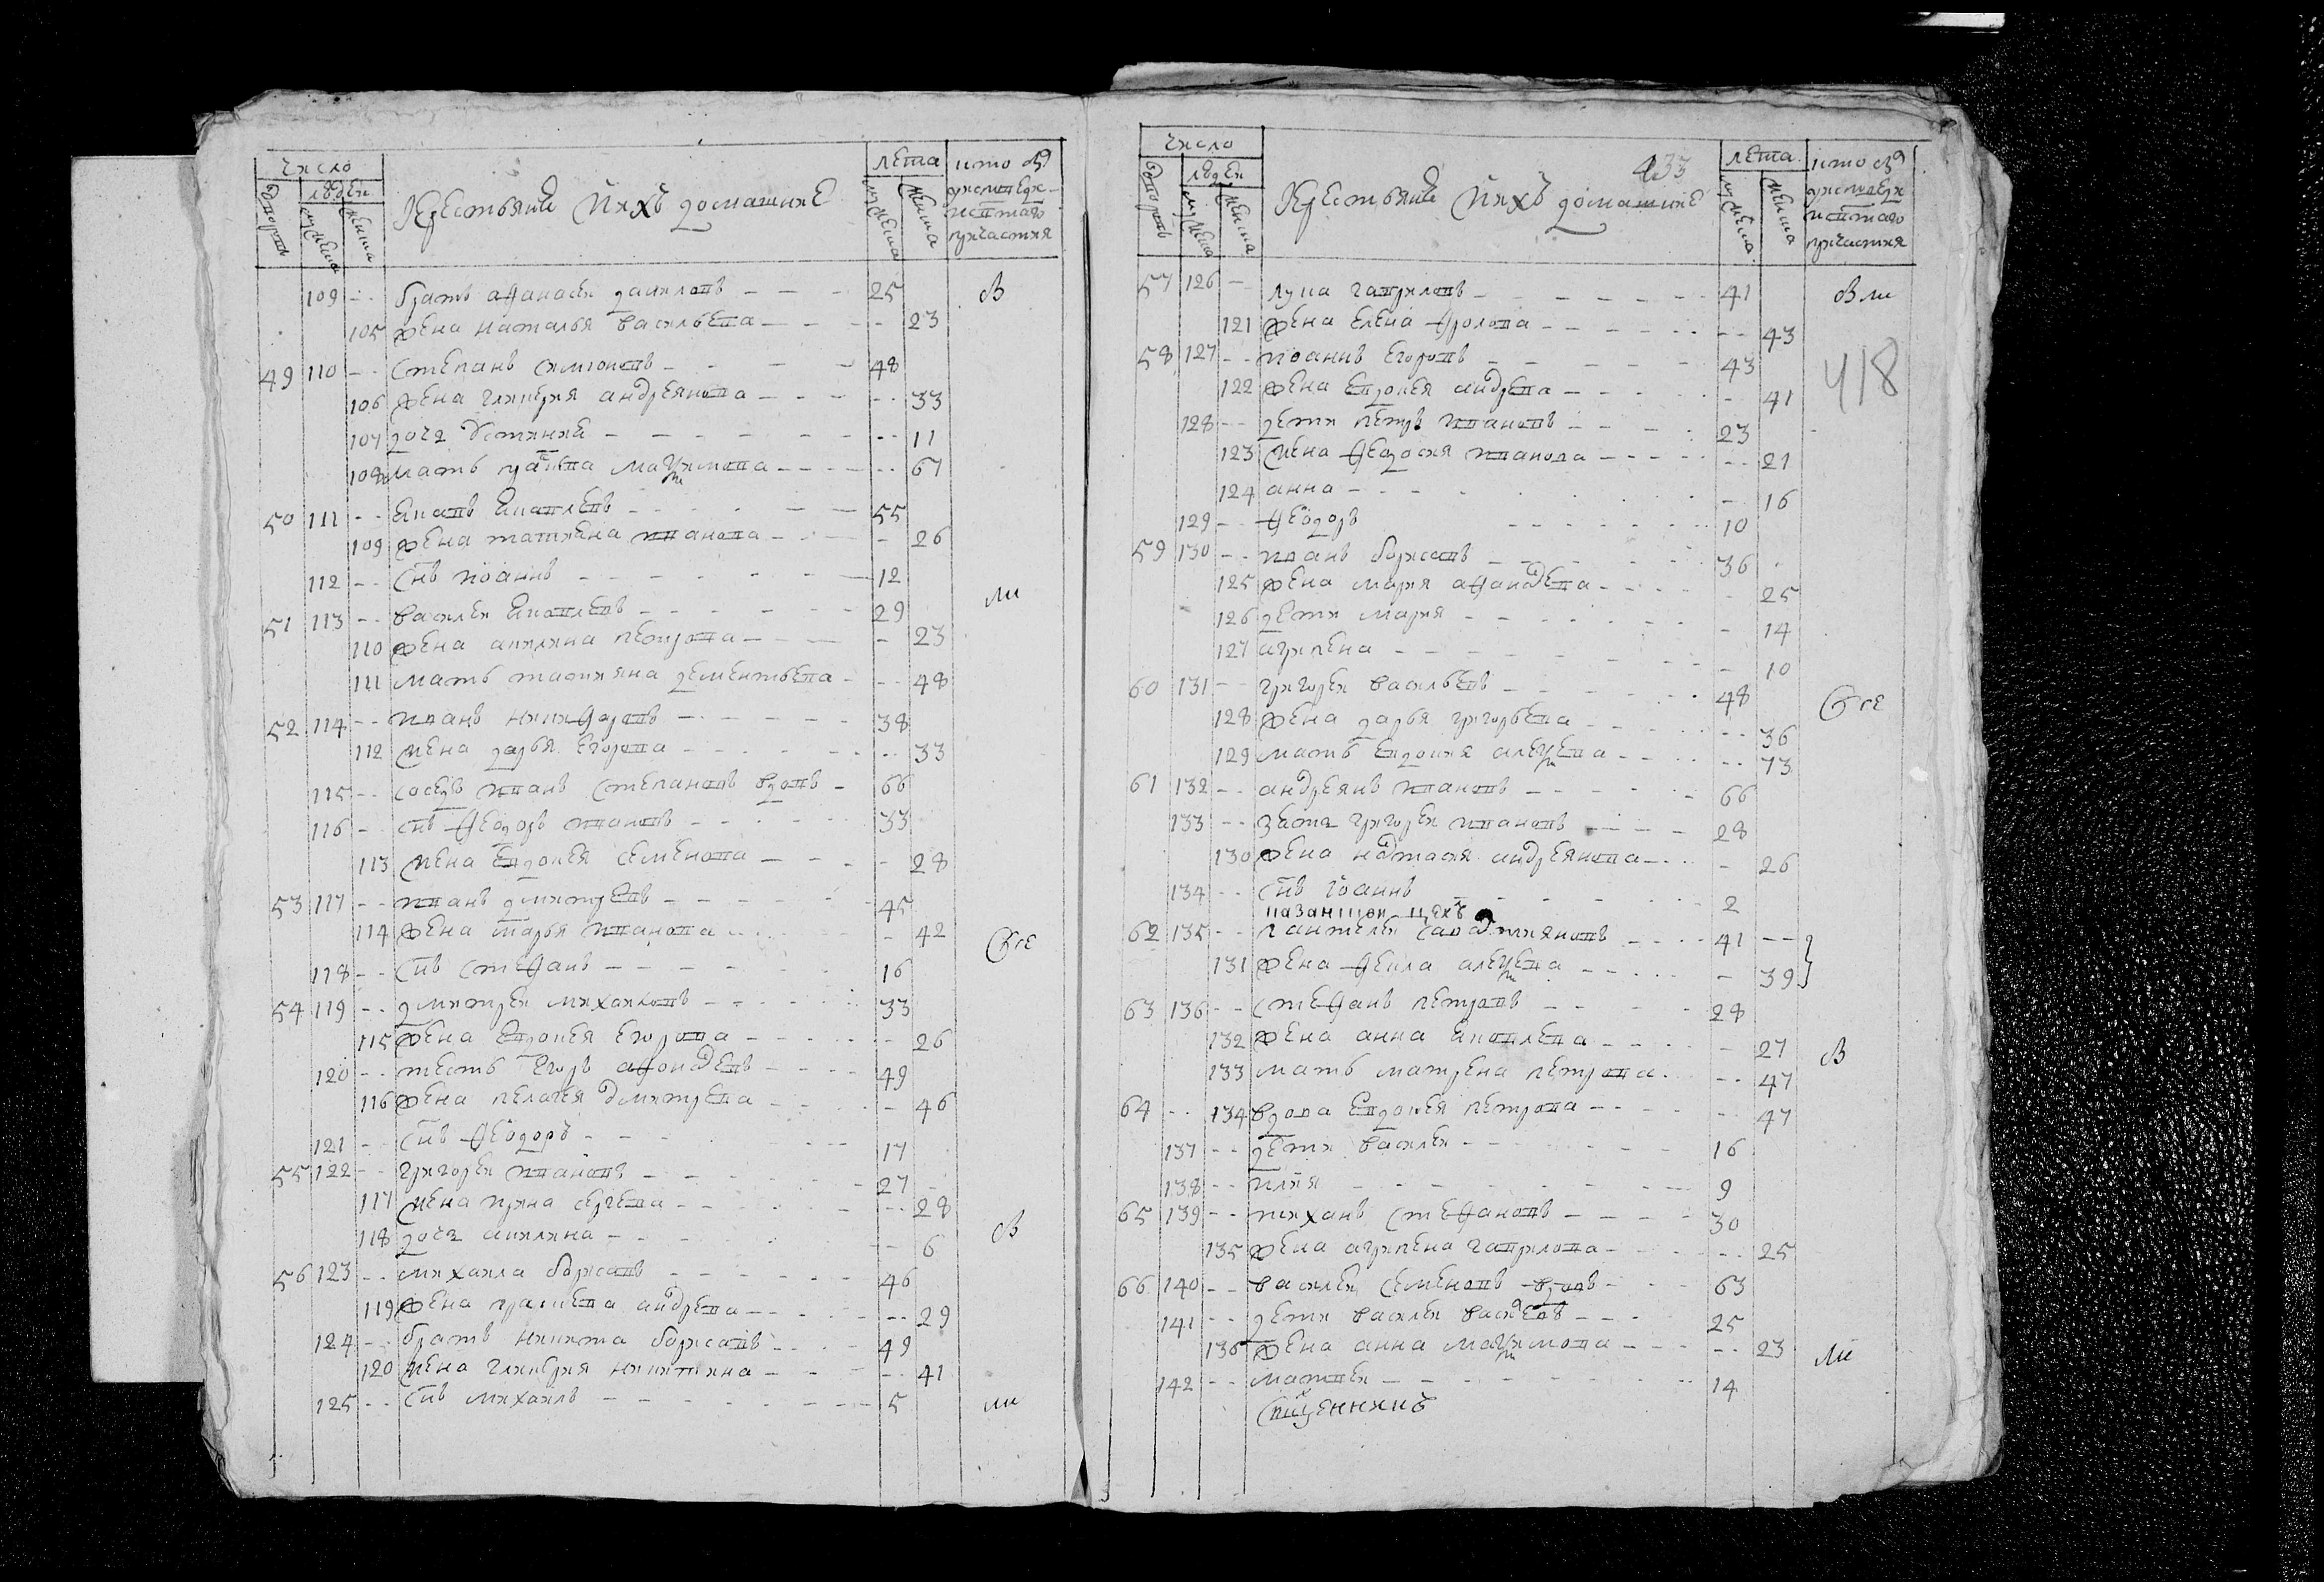 число
людеи
дворовъ
мужеска
женска
Крестьяне и ихъ домашние
лета
мужеска
женска
кто был у исповеди и святаго причастия
109 -- братъ афанасеи данилавъ --- 25 В
105 жена наталья васильева --- 23
49 110 -- степанъ симионавъ --- 48
106 жена гликерия андреянова --- 33
107 дочь устиния --- 11
108 мать максимова --- 67
50 111 -- иаковлевъ --- 55
109 жена татияна иванова --- 26
112 -- снъ иоаннъ --- 12
ли
51 113 -- василеи иаковлевъ --- 29
110 жена акилина петрова --- 23
111 мать татияна дементьева --- 48
52 114 -- иванъ никифаравъ --- 38
112 жена дарья егорова --- 33
115 -- соседъ иванъ степановъ вдовъ - 66
116 -- снъ феодоръ ивановъ --- 33
113 жена евдокея семенова --- 28
53 117 -- иванъ дмитревъ --- 45
114 жена марья иванова --- 42
Все
118 -- снъ стефанъ --- 16
54 119 -- дмитреи михаиловъ --- 33
115 жена евдокея егорова --- 26
120 -- тесть егоръ афонасевъ --- 49
116 жена пелагея дмитрева --- 46
121 -- снъ феодоръ --- 17
55 122 -- григореи ивановъ --- 27
117 жена ирина сергева --- 28
В
118 дочь акилина --- 6
56 123 -- михаила борисавъ --- 46
119 жена андрева --- 29
124 -- братъ никита борисавъ --- 49
120 жена гликерия никитина --- 41
125 -- снъ михаилъ --- 5 ли
433
число
людеи
дворовъ
мужеска
женска
Крестьяне и ихъ домашние
лета
мужеска
женска
кто был у исповеди и святаго причастия
57 126 -- лука гаврилавъ --- 41 В ли
121 жена елена фролова --- 43
418
58 127 -- иоаннъ егоровъ --- 43
122 жена евдокея андрева --- 41
128 -- дети петръ ивановъ --- 23
123 жена феодосия иванова --- 21
124 анна --- 16
129 -- феодоръ --- 10
59 130 -- иванъ борисавъ --- 36
125 жена мария афанасева --- 25
126 дети мария --- 14
127 агрипена --- 10
60 131 -- григореи васильевъ --- 48
Все
128 жена дарья григорьева --- 36
129 мать евдокия алексева --- 73
61 132 -- андреянъ ивановъ --- 66
133 -- зать григореи ивановъ --- 28
130 жена настасия андреянова --- 26
134 -- снъ иоаннъ --- 2
62 135 -- пантелеи --- 41 --
131 жена фекла алексева --- 39
63 136 -- стефанъ петровъ --- 28
132 жена анна иаковлева --- 27
В
133 мать матрена петрова --- 47
64 -- 134 вдова евдокея петрова --- 47
137 -- дети василеи --- 16
138 -- илия --- 9
65 139 -- тиханъ стефановъ --- 30
135 жена агрипена гаврилова --- 25
66 140 -- василеи семеновъ вдовъ --- 63
141 -- дети василеи васильевъ --- 25
136 жена анна максимова --- 23
ли
142 -- матвеи --- 14
священникъ